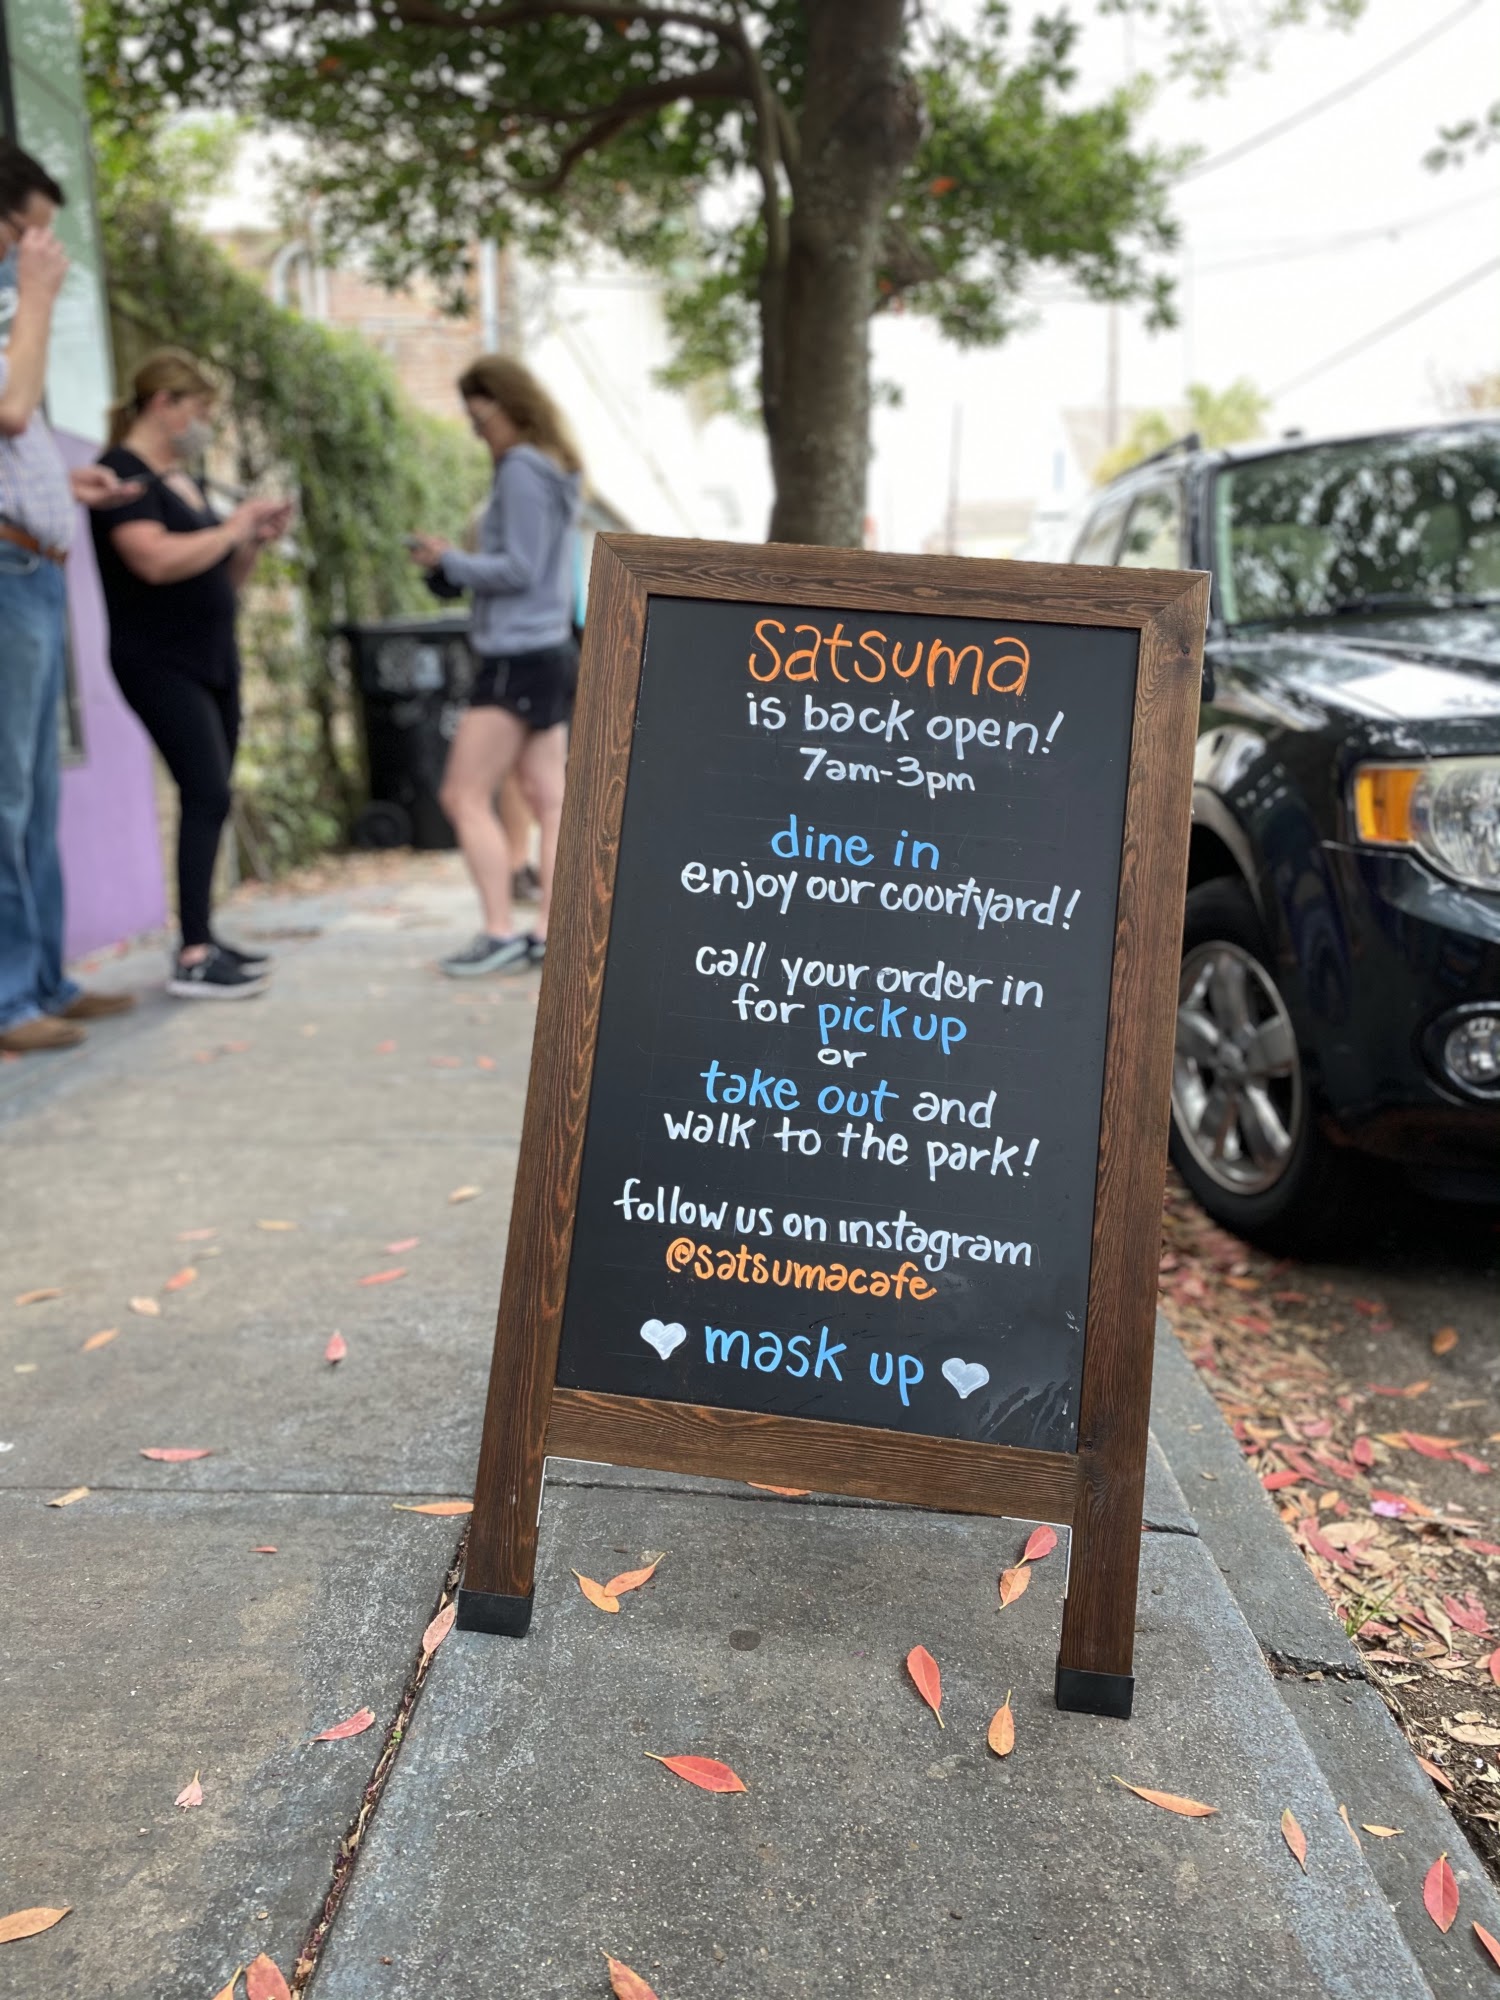 satsuma
is back open!
7am-3pm
dine in
enjoy our courtyard!
call your order in
for pickup
or
take out and
walk to the park!
follow us on instagram
@satsumacafe
mask up